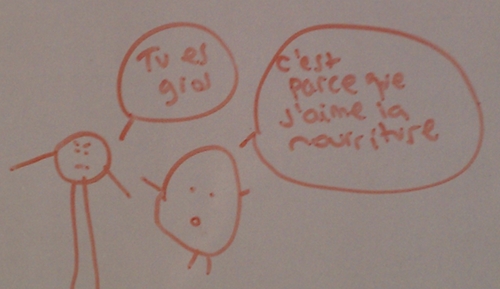 Tu es
gros
c'est
parce que
j'aime la
nourriture